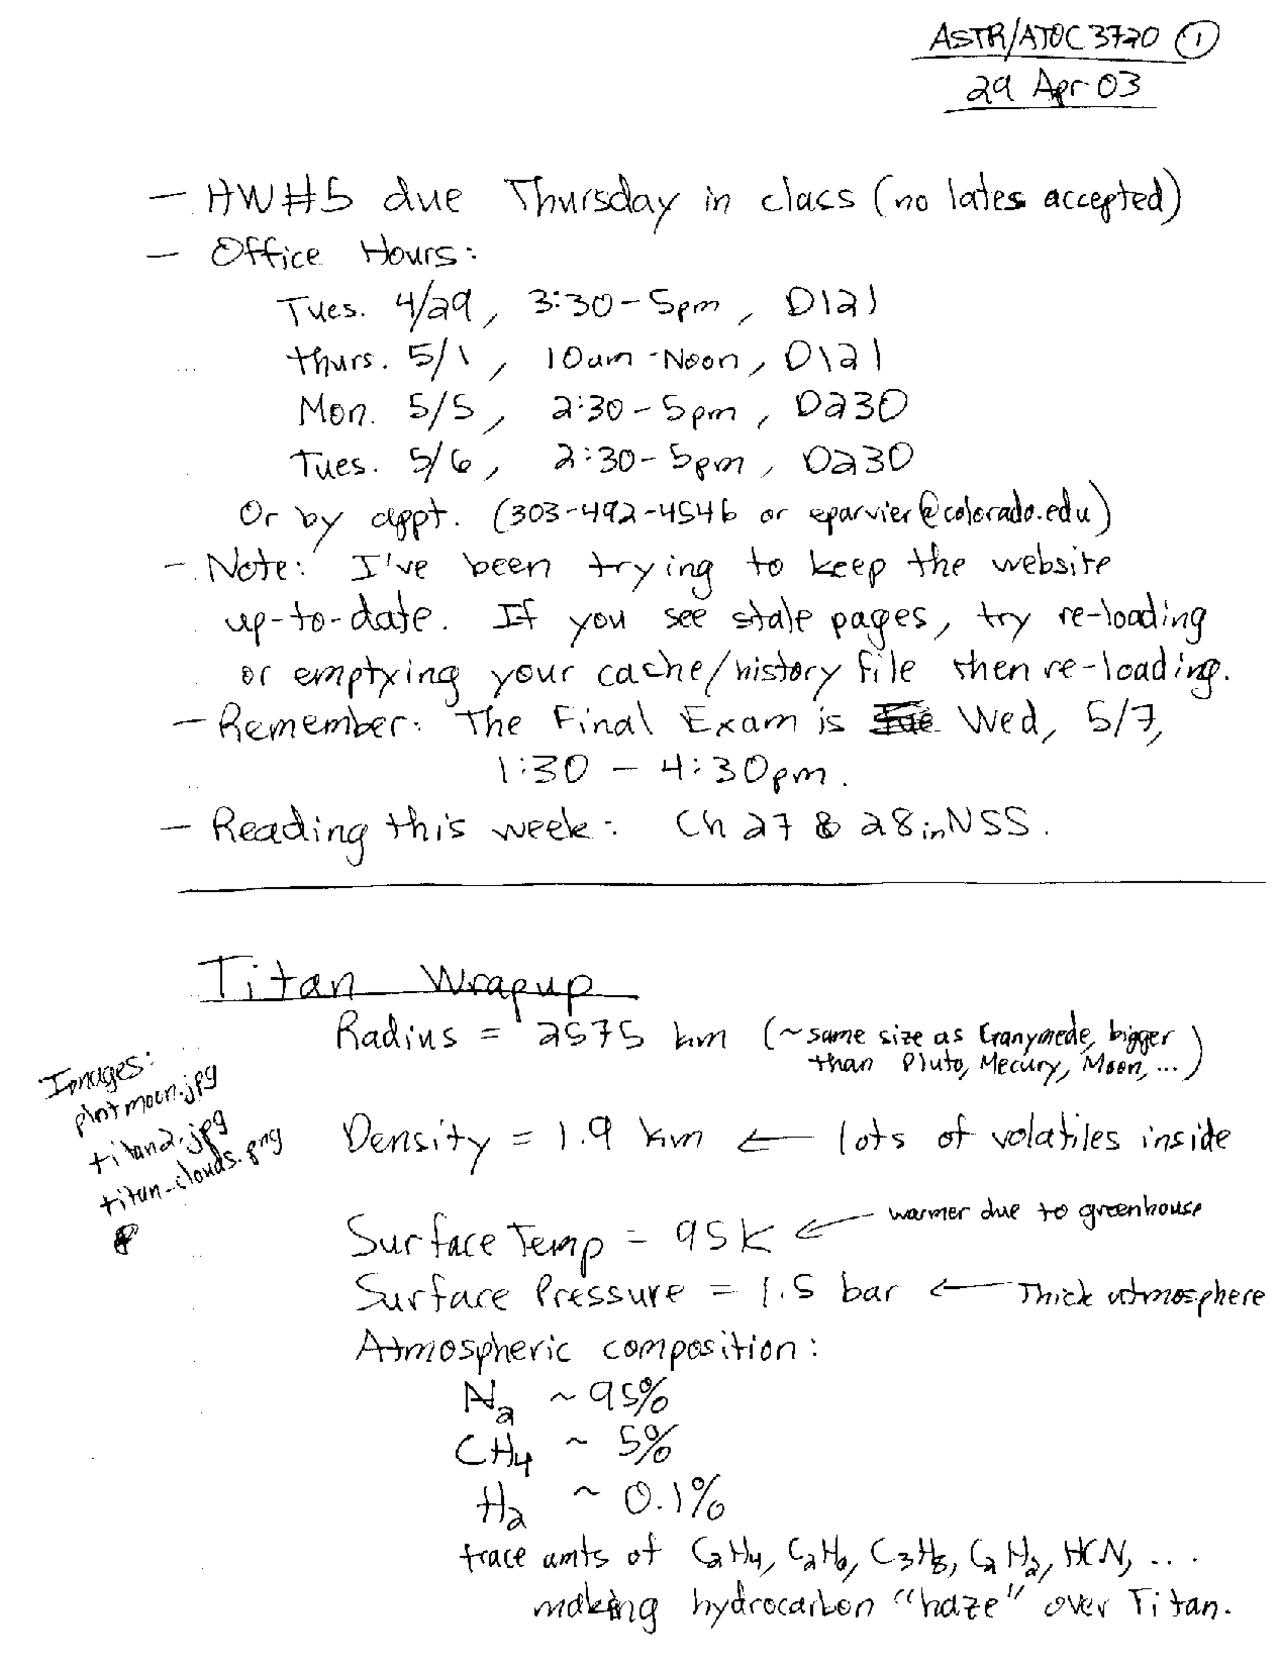 ASTR/ATOC 3720 ①
29 Apr 03
- HW#5 due Thursday in class (no lates accepted)
- Office Hours:
Tues. 4/29, 3:30-5pm, D121
Thurs. 5/1, 10am-Noon, D121
Mon. 5/5, 2:30-5pm, D230
Tues. 5/6, 2:30-5pm, D230
Or by appt. (303-492-4546 or eparvier@colorado.edu)
- Note: I've been trying to keep the website
up-to-date. If you see stale pages, try re-loading
or emptying your cache/history file then re-loading.
- Remember: The Final Exam is Wed, 5/7,
1:30 - 4:30pm.
- Reading this week: Ch 27 & 28 in NSS.
Titan Wrapup
Radius = 2575 km (~same size as Ganymede, bigger
than Pluto, Mecury, Moon, ...)
Images:
plntmoon.jpg
titan2.jpg
titan-clouds.png
Density = 1.9 km ← lots of volatiles inside
Surface Temp = 95K ← warmer due to greenhouse
Surface Pressure = 1.5 bar ← Thick atmosphere
Atmospheric composition:
N₂ ~ 95%
CH₄ ~ 5%
H₂ ~ 0.1%
trace amts of C₂H₄, C₂H₆, C₃H₈, C₂H₂, HCN, ...
making hydrocarbon "haze" over Titan.